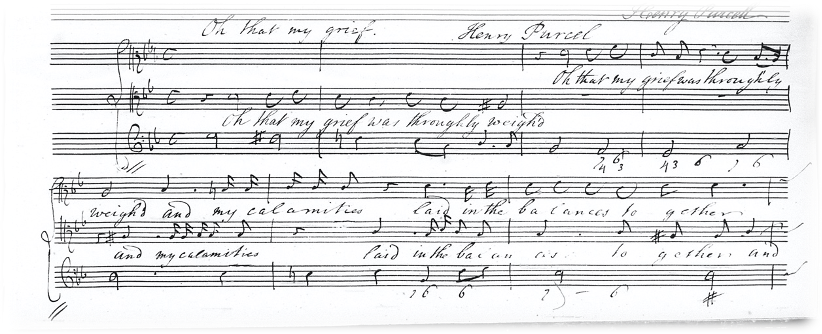 Henry Purcell
Oh that my grief. Henry Purcel
Oh that my grief was throughly
Oh that my grief was throughly weigh'd
2 6
4 3
4 3 6 7 6
weigh'd and my calamities laid in the balances to gether
and my calamities laid in the balan ces to gether and
7 6 6 7 6
#